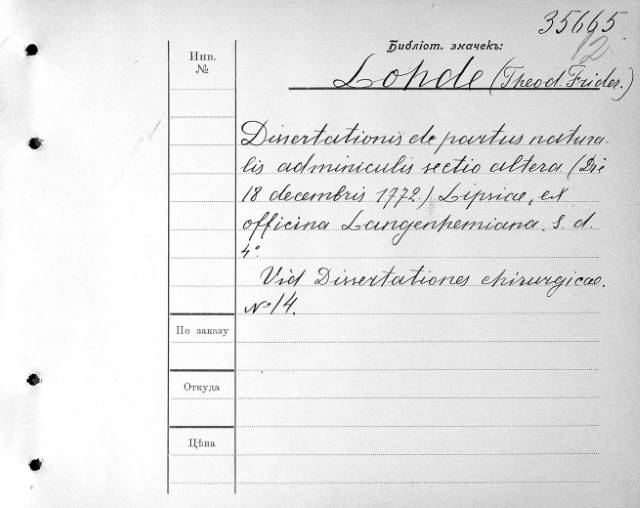 35665
2
Библіот. значекъ:
Инв.
№
Lohde (Theod. Frider.)
Dissertationis de partus natura-
lis adminiculis sectio altera. (Die
18 decembris 1772.) Lipsiae, ex
officina Langenhemiana. s. d.
4°.
Vid Dissertationes chirurgicae.
№ 14.
По заказу
Откуда
Цѣна